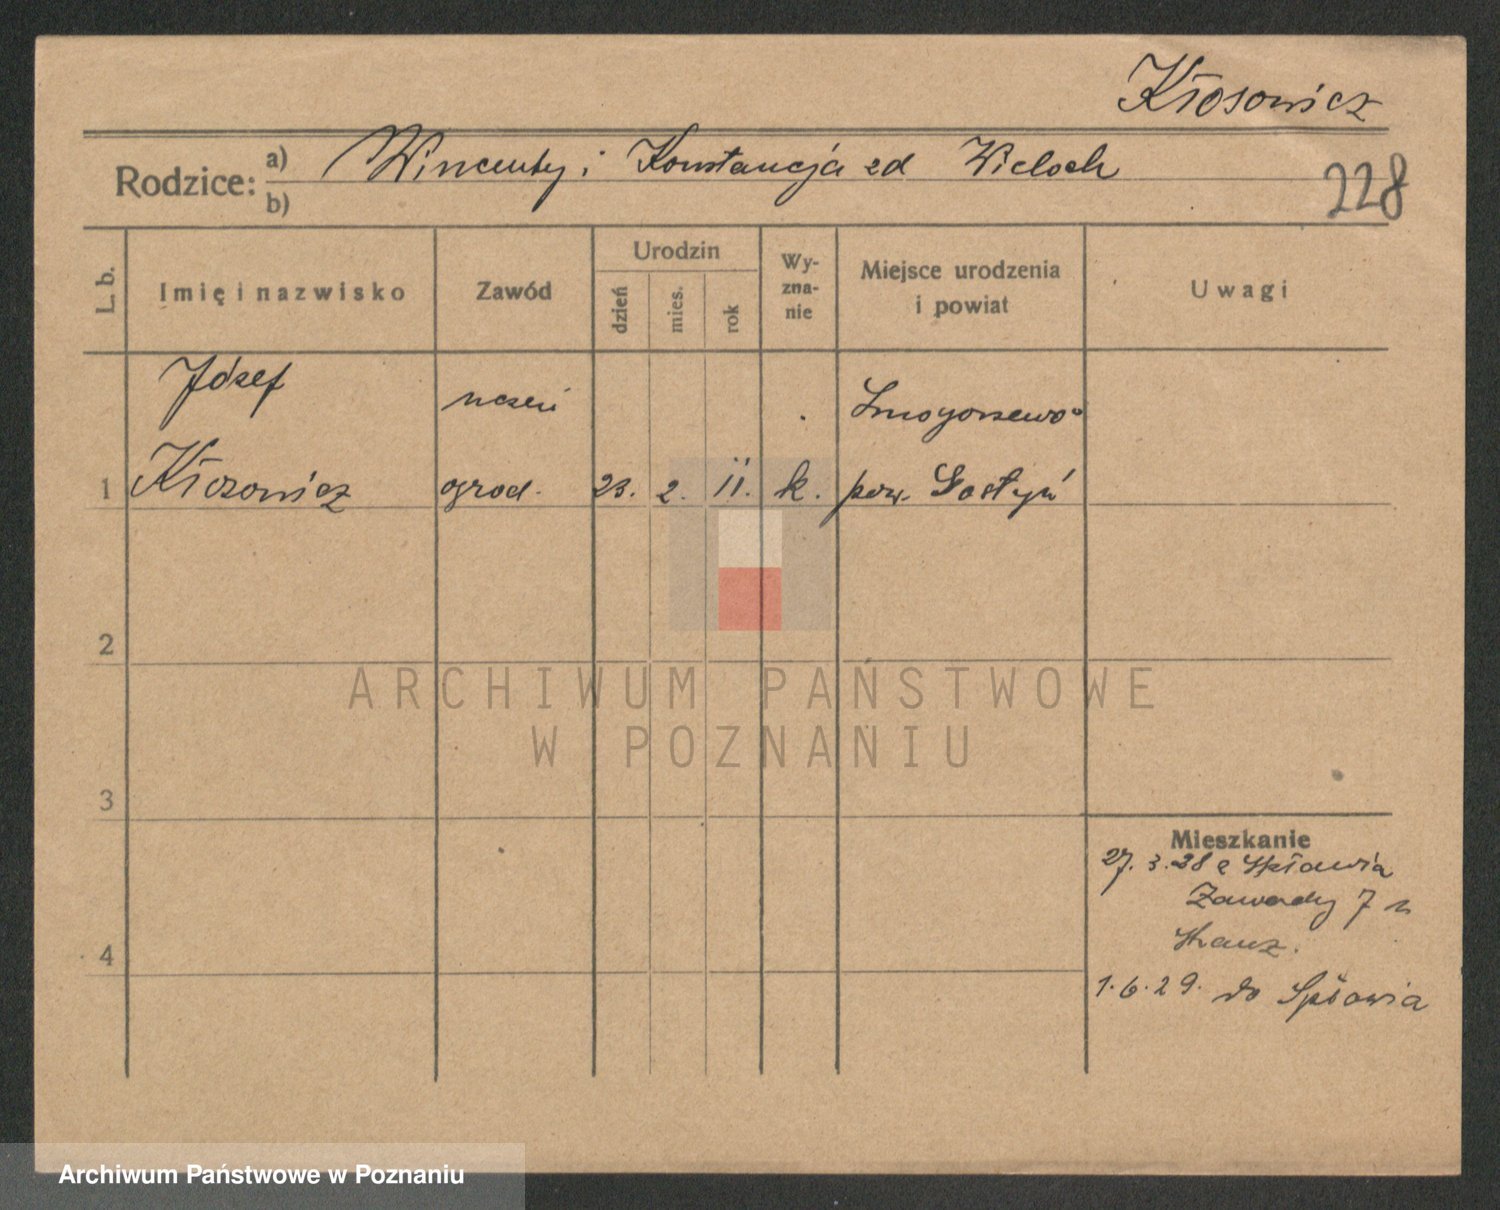 Kłosowicz
Rodzice: a) Wincenty i Konstancja zd Wieloch
b)
228
L. b.
Imię i nazwisko
Zawód
Urodzin
dzień
mies.
rok
Wy-
zna-
nie
Miejsce urodzenia
i powiat
Uwagi
Józef
uczeń
Smogorzewo
1 Kłosowicz ogrod. 23. 2. 11. k. pow. Gostyń
2
3
4
Mieszkanie
27. 3. 28 z
Zawady 7 u
1.6.29. do Spławia
ARCHIWUM PAŃSTWOWE
W POZNANIU
Archiwum Państwowe w Poznaniu